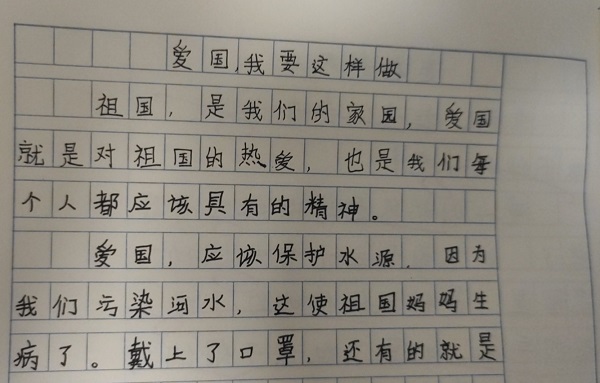 爱国,我要这样做
祖国，是我们的家园，爱国
就是对祖国的热爱，也是我们每
个人都应该具有的精神。
爱国，应该保护水源．因为
我们污染河水，这使祖国妈妈生
病了。戴上了口罩，还有的就是